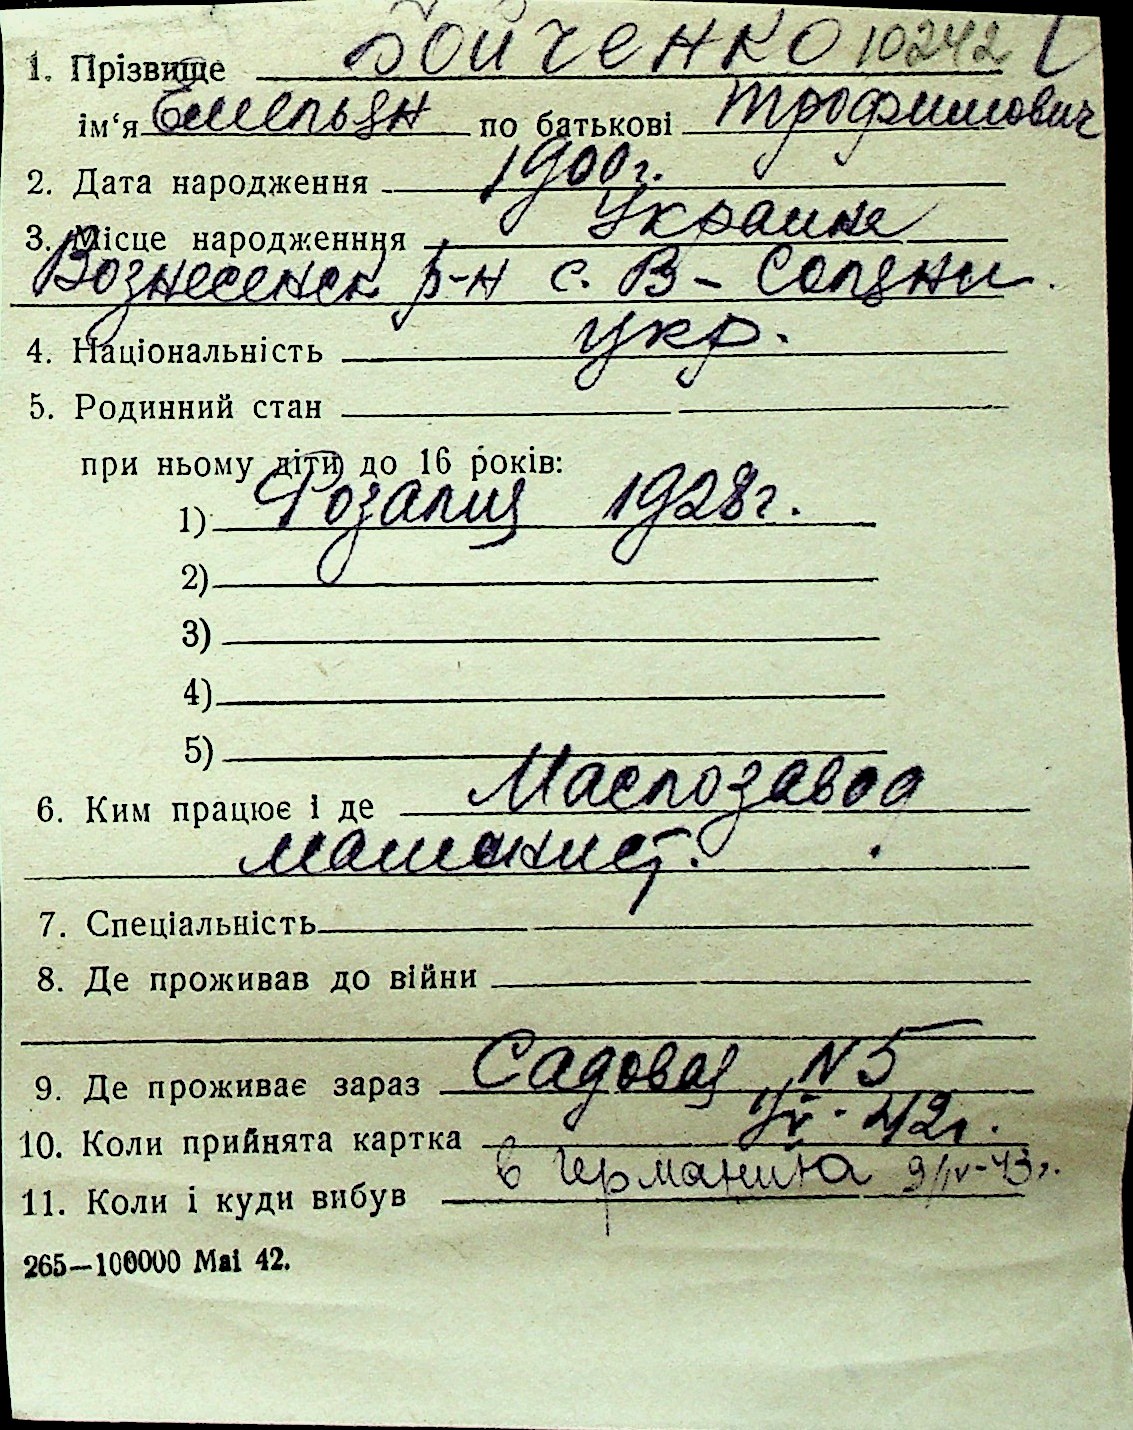 1. Прізвище Бойченко 10242
ім‘я Емельян по батькові Трофимович
2. Дата народження 1900г.
3. Місце народженння Украина
Вознесенск р-н с. В-Солоны.
4. Національність укр.
5. Родинний стан
при ньому діти до 16 років:
1) Розалия 1928г.
2)
3)
4)
5)
6. Ким працює і де Маслозавод
машинист.
7. Спеціальність
8. Де проживав до війни
9. Де проживає зараз Садовая N 5
10. Коли прийнята картка 42г.
11. Коли і куди вибув в Германию 9/IV-43г.
265—100000 Mai 42.